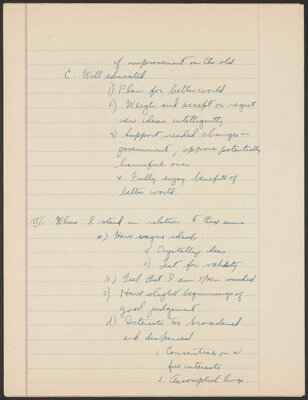 if improvement on the old.
C. Well educated
1) Plan for better world
2) Weigh and accept or reject
new ideas intelligently
3) Support needed changes in
government, oppose potentially
harmful ones
4. Fully enjoy benefits of
better world.
III. Where I stand in relation to these aims
a) Have vague ideals
1) Crystallize ideas
2) Test for validity
b) Feel that I am open minded
c) Have slight beginnings of
good judgement
d) Interests too broadened
and dispersed
1. Concentrate on a
few interests
2. Accomplish things